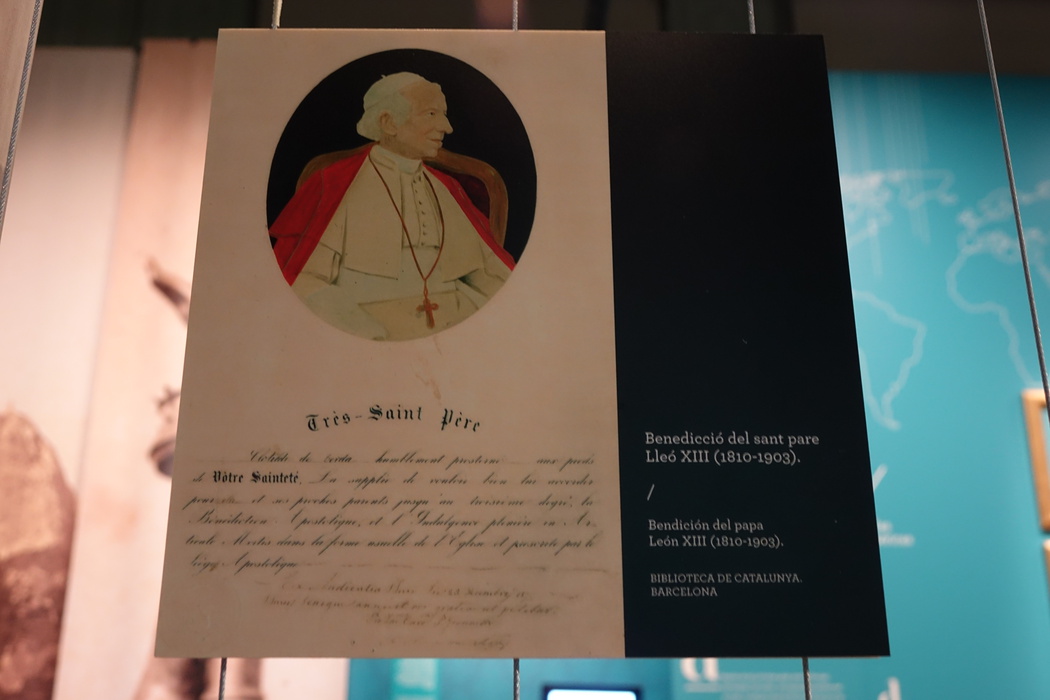 Très-Saint Père
Clotilde de Cerda humblement prosterné aux pieds
de Vôtre Sainteté, La supplie de vouloir bien lui accorder
pour et ses proches parents jusqu'au troisième degré, la
Bénédiction Apostolique, et l'Indulgence plénière in Ar-
ticulo Mortis dans la forme usuelle de l'Eglise et prescrite par le
Siège Apostolique
Benedicció del sant pare
Lleó XIII (1810-1903).
/
Bendición del papa
León XIII (1810-1903).
BIBLIOTECA DE CATALUNYA.
BARCELONA